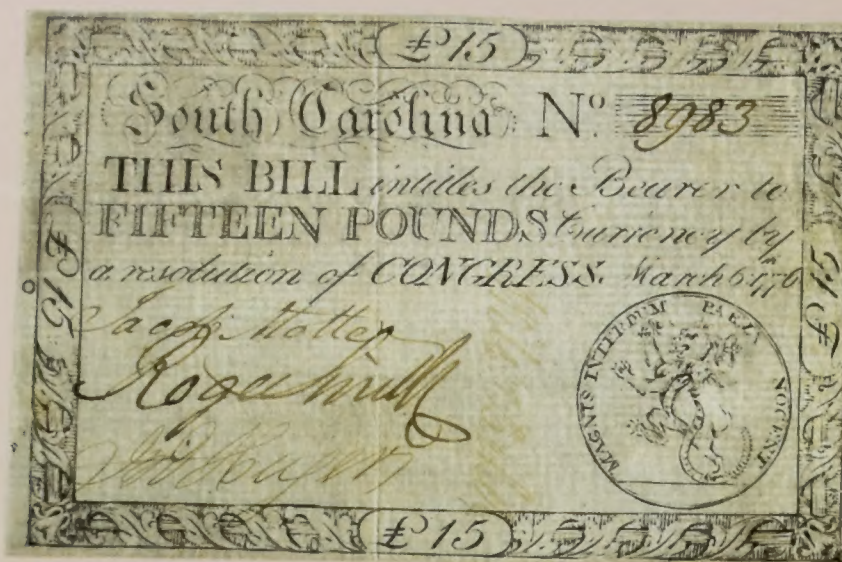 £15
South Carolina No. 8983
THIS BILL intitles the Bearer to
FIFTEEN POUNDS Currency by
a resolution of CONGRESS. March 6th 1776
£15
£15
Jacob Motte
Roger Smith
MAGNIS INTERDUM PARVA NOCENT
£15